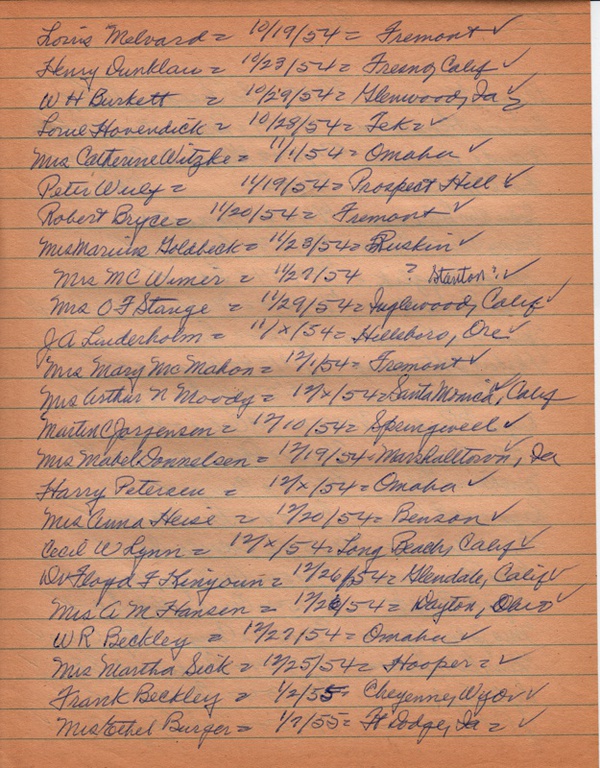 Louis Melvard = 10/19/54 = Fremont ✓
Henry Dunklau = 10/23/54 = Fresno, Calif ✓
W H Burkett = 10/29/54 = Glenwood, Ia ✓
Hovendick = 10/28/54 = Tek = ✓
Mrs Catherine Witzke = 11/1/54 = Omaha ✓
Peter Wuly = 11/19/54 = Prospect Hill ✓
Robert Bryce = 11/20/54 = Fremont ✓
Mrs Marius Goldbeck = 11/23/54 = Ruskin ✓
Mrs MC Wimer = 11/27/54 ? Stanton ? ✓
Mrs O F Stange = 11/29/54 = Inglewood, Calif ✓
J A Linderholm = 11/x/54 = Hillsboro, Ore ✓
Mrs Mary McMahon = 12/1/54 = Fremont ✓
Mrs Arthur N Moody = 12/x/54 = Santa Monica, Calif ✓
Martin C Jorgensen = 12/10/54 = ✓
Mrs Mabel Donnelsen = 12/19/54 = Marshalltown, Ia ✓
Harry Petersen = 12/x/54 = Omaha ✓
Mrs Anna Heise = 12/20/54 = Benson ✓
Cecil W Lynn = 12/x/54 = Long Beach, Calif ✓
Dr Floyd F Kinyoun = 12/26/54 = Glendale, Calif ✓
Mrs A M Hansen = 12/26/54 = Dayton, Ohio ✓
W R Beckley = 12/27/54 = Omaha ✓
Mrs Martha Sick = 12/25/54 = Hooper = ✓
Frank Beckley = 1/2/55 = Cheyenne, Wyo ✓
Mrs Ethel Burger = 1/7/55 = Ft Dodge, Ia = ✓